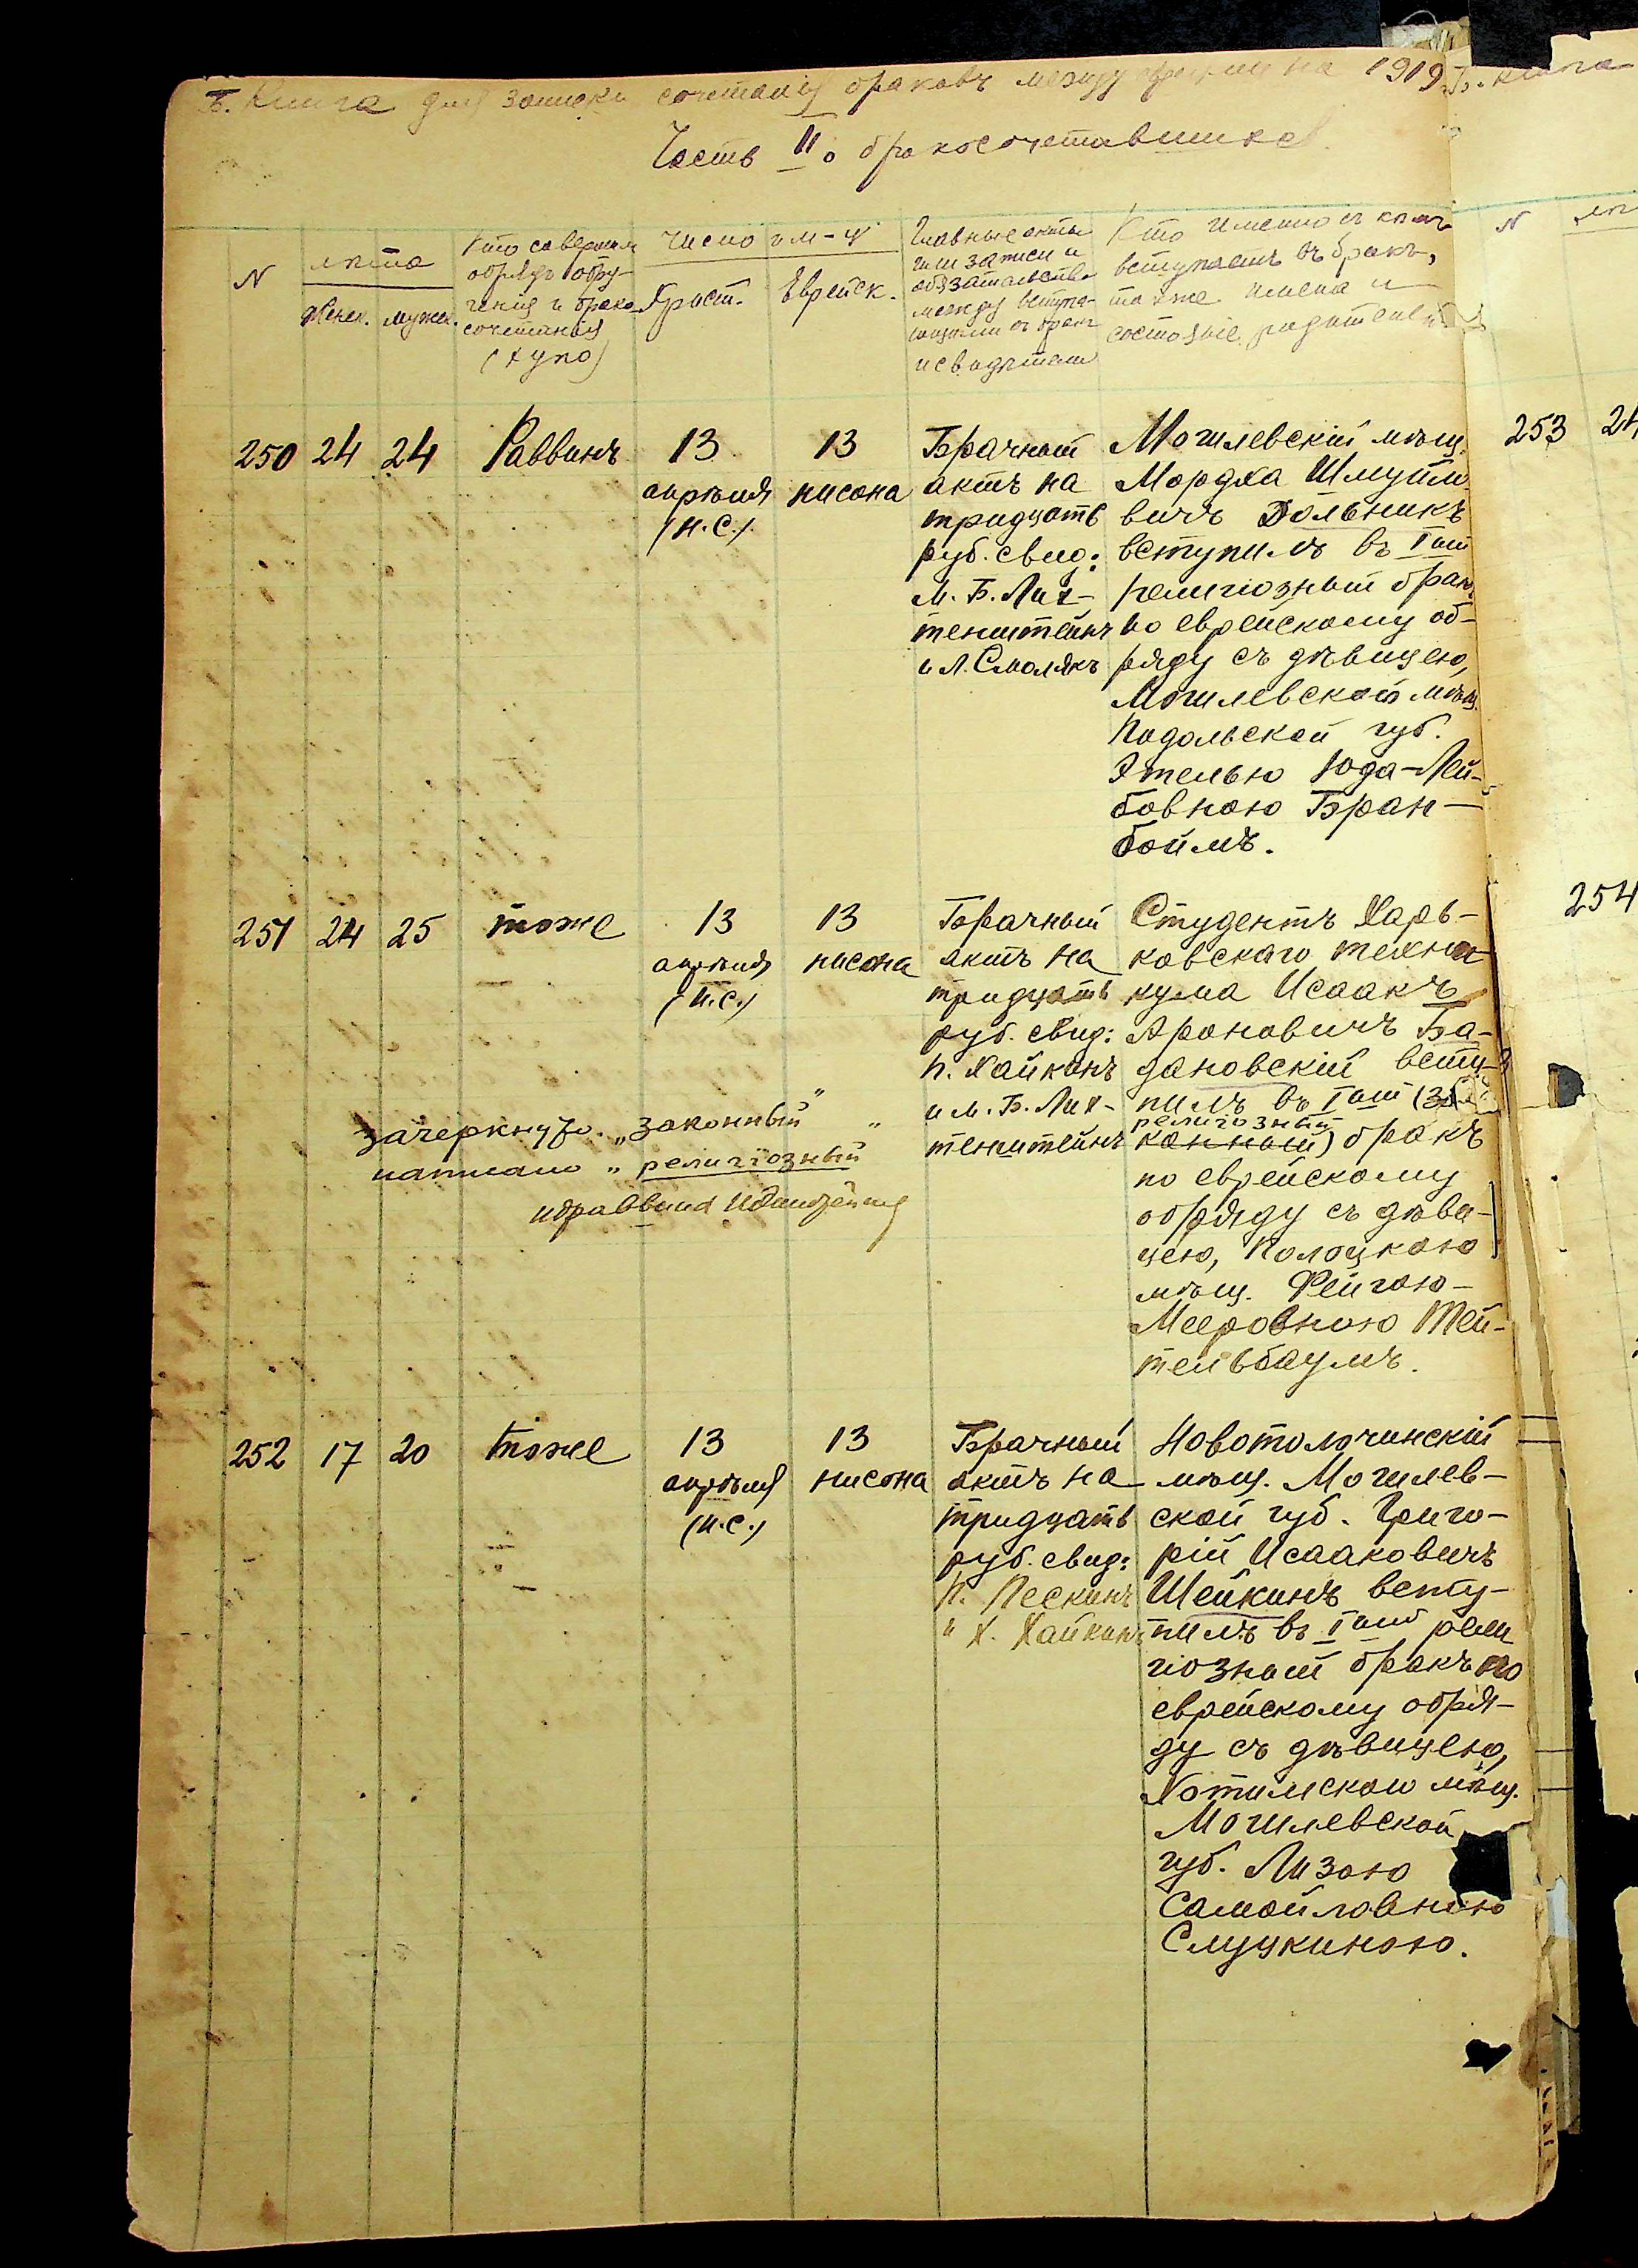 Б. Книга для записки сочетанія браковъ между евреями на 1919
Б. Книга
Часть II о бракосочетавшихся
N
лѣта
Женск.
мужск.
Кто совершал
обрядъ обру-
ченія и брако
сочетанія
(хупо)
Число и м-ц
Христ.
Еврейск.
Главные акты
или записи и
обязательства
между вступа-
ющими въ бракъ
и свидѣтели
Кто именно съ кѣмъ
вступаетъ въ бракъ,
также имена и
состояніе родителей
N
250
24
24
Раввинъ
13
апрѣля
(н.с.)
13
нисона
Брачный
актъ на
тридцать
руб. свид:
М. Б. Лих-
тенштейнъ
и Л. Смолякъ
Могилевскій мѣщ.
Мордха Шмуйло
вичъ Дольникъ
вступилъ въ Iый
религіозный бракъ
по еврейскому об-
ряду съ дѣвицею,
Могилевской мѣщ.
Подольской губ.
Этелью Юда-Лей-
бовною Бран-
боймъ.
251
24
25
тоже
13
апрѣля
(н.с.)
13
нисона
Брачный
актъ на
тридцать
руб. свид:
П. Хайкинъ
и М. Б. Лих-
тенштейнъ
Студентъ Харь-
ковскаго техно-
кума Исаакъ
Ароновичъ Ба-
дановскій всту-
пилъ въ Iый (за
религіозный
конный) бракъ
по еврейскому
обряду съ дѣви-
цею, Полоцкою
мѣщ. Фейгою-
Мееровною Тей-
тельбаумъ.
зачеркнуто „законный"
написано „религіозный"
252
17
20
тоже
13
апрѣля
(н.с.)
13
нисона
Брачный
актъ на
тридцать
руб. свид:
П. Пескинъ
и Х. Хайкинъ
Новотолочинскій
мѣщ. Могилев-
ской губ. Григо-
рій Исааковичъ
Шейкинъ всту-
пилъ въ Iый рели
гіозный бракъ по
еврейскому обря-
ду съ дѣвицею,
Хотимскою мѣщ.
Могилевской
губ. Лизою
Самойловною
Слуцкиною.
253
24
254